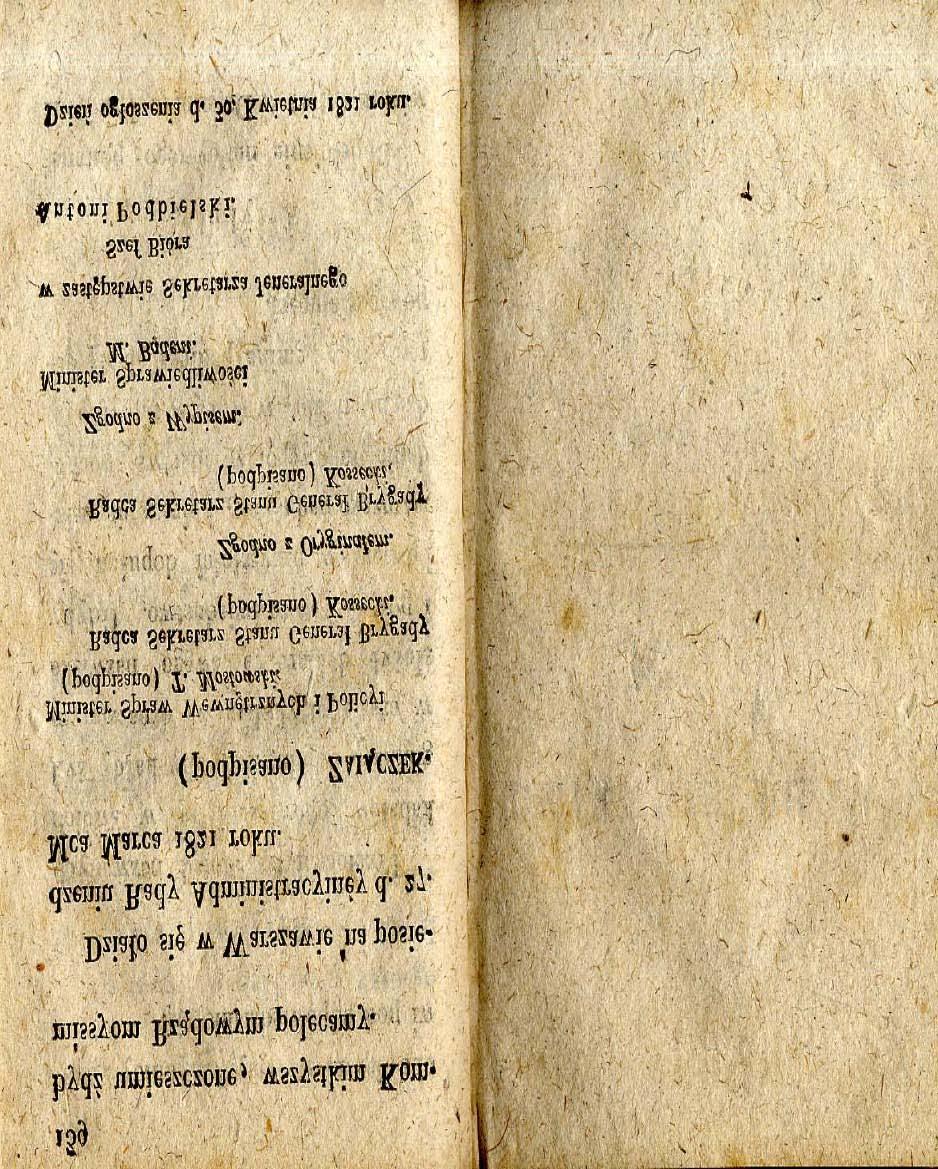 139
bydź umieszczone, wszystkim Kom-
missyom Rządowym polecamy.
Działo się w Warszawie na posie-
dzeniu Rady Administracyinéy d. 27.
Mca Marca 1821 roku.
(podpisano) ZAIĄCZEK.
Minister Spraw Wewnętrznych i Policyi
(podpisano) T. Mostowski.
Radca Sekretarz Stanu Generał Brygady
(podpisano) Kossecki,
Zgodno z Oryginałem.
Radca Sekretarz Stanu Generał Brygady
(podpisano) Kossecki,
Zgodno z Wypisem.
Minister Sprawiedliwości
M. Badeni.
w zastępstwie Sekretarza Jeneralnego
Szef Bióra
Antoni Podbielski.
Dzień ogłoszenia d. 30. Kwietnia 1821 roku.